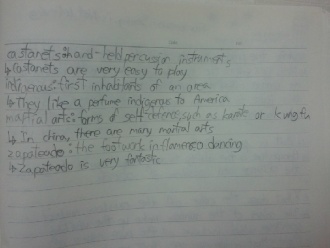 castanets: hand-held percussion instruments
↳ Castanets are very easy to play
indigenous: first inhabitants of an area
↳ They like a perfume indigenous to America
martial arts: forms of self-defense, such as karate or kung fu
↳ In china, there are many martial arts
zapateado: the footwork in flamenco dancing
↳ Zapateado is very fantastic